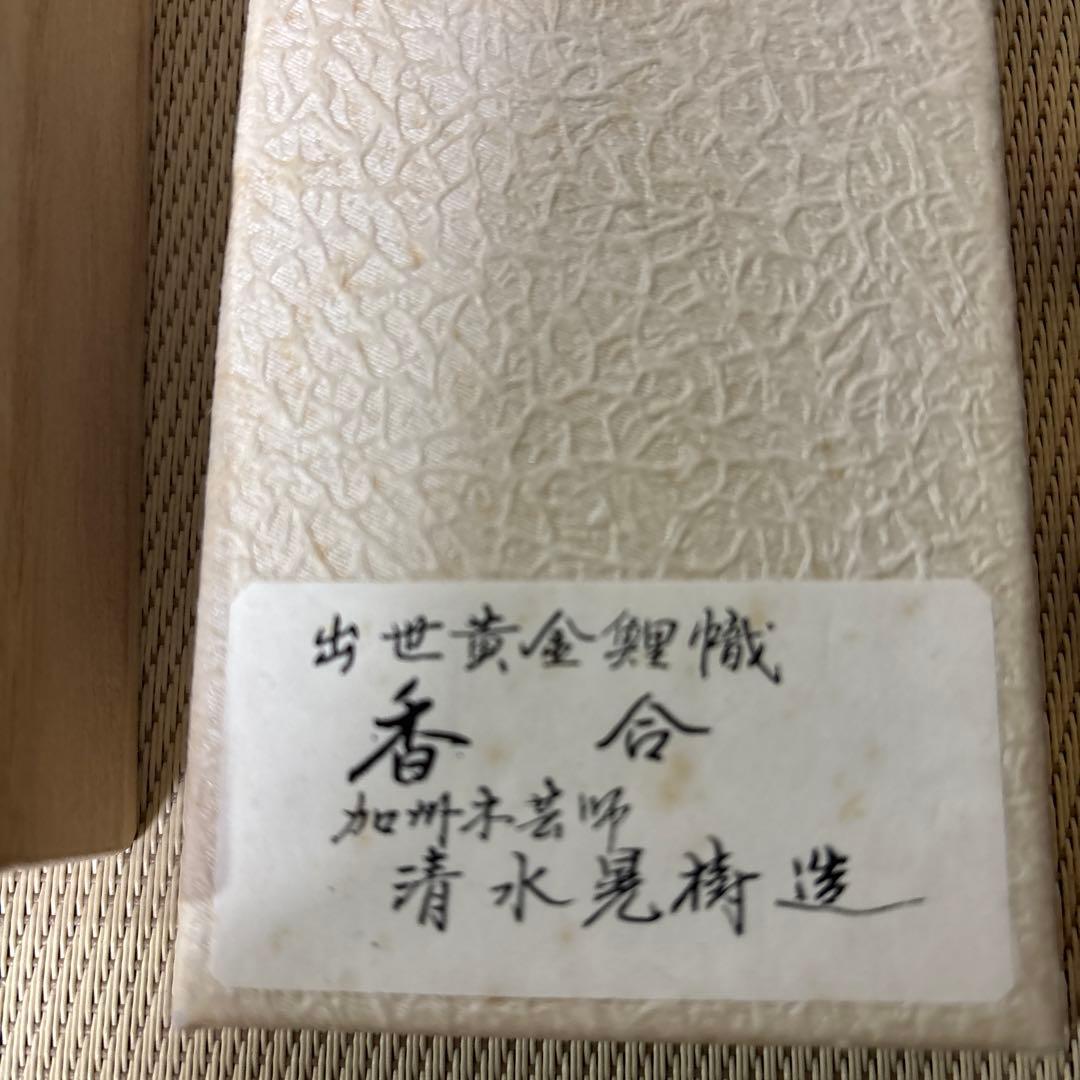 出世黄金鯉幟
香合
加州木芸師
清水晃樹造